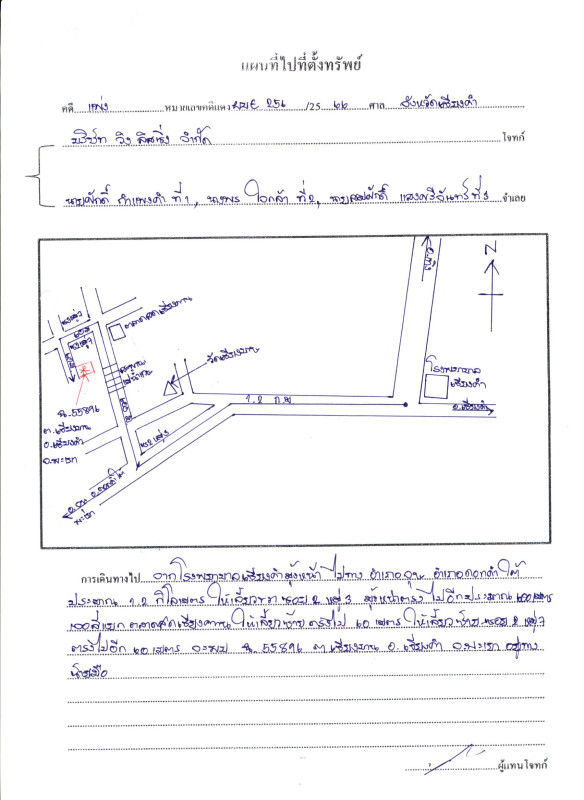 แผนที่ไปที่ตั้งทรัพย์
คดี แพ่ง หมายเลขคดีแดง ผบE 256 /25 66 ศาล จังหวัดเชียงคำ
บริษัท วิง ลิสซิ่ง จำกัด โจทก์
กำแพงคำ ที่1, ที่ 2, จำเลย
N
ตลาดสดเชียงบาน
วัดเชียงบาน
โรงพยาบาล
เชียงคำ
1.2 กม
อ.เชียงคำ
ฉ.55896
ต.เชียงบาน
อ.เชียงคำ
จ.พะเยา
การเดินทางไป จากโรงพยาบาลเชียงคำมุ่งหน้า ไปทาง อำเภอจุน อำเภอดอกคำใต้
ประมาณ 1.2 กิโลเมตร ให้เลี้ยวขวา ซอย 2 หมู่ 3 มุ่งหน้าตรงไปอีกประมาณ 200 เมตร
เจอสี่แยก ตลาดสดเชียงบาน ให้เลี้ยวซ้าย ตรงไป 60 เมตร ให้เลี้ยวซ้าย ซอย 2 หมู่ 3
ตรงไปอีก 60 เมตร จะพบ ฉ.55896 ต.เชียงบาน อ.เชียงคำ จ.พะเยา อยู่ทาง
ซ้ายมือ
ผู้แทนโจทก์